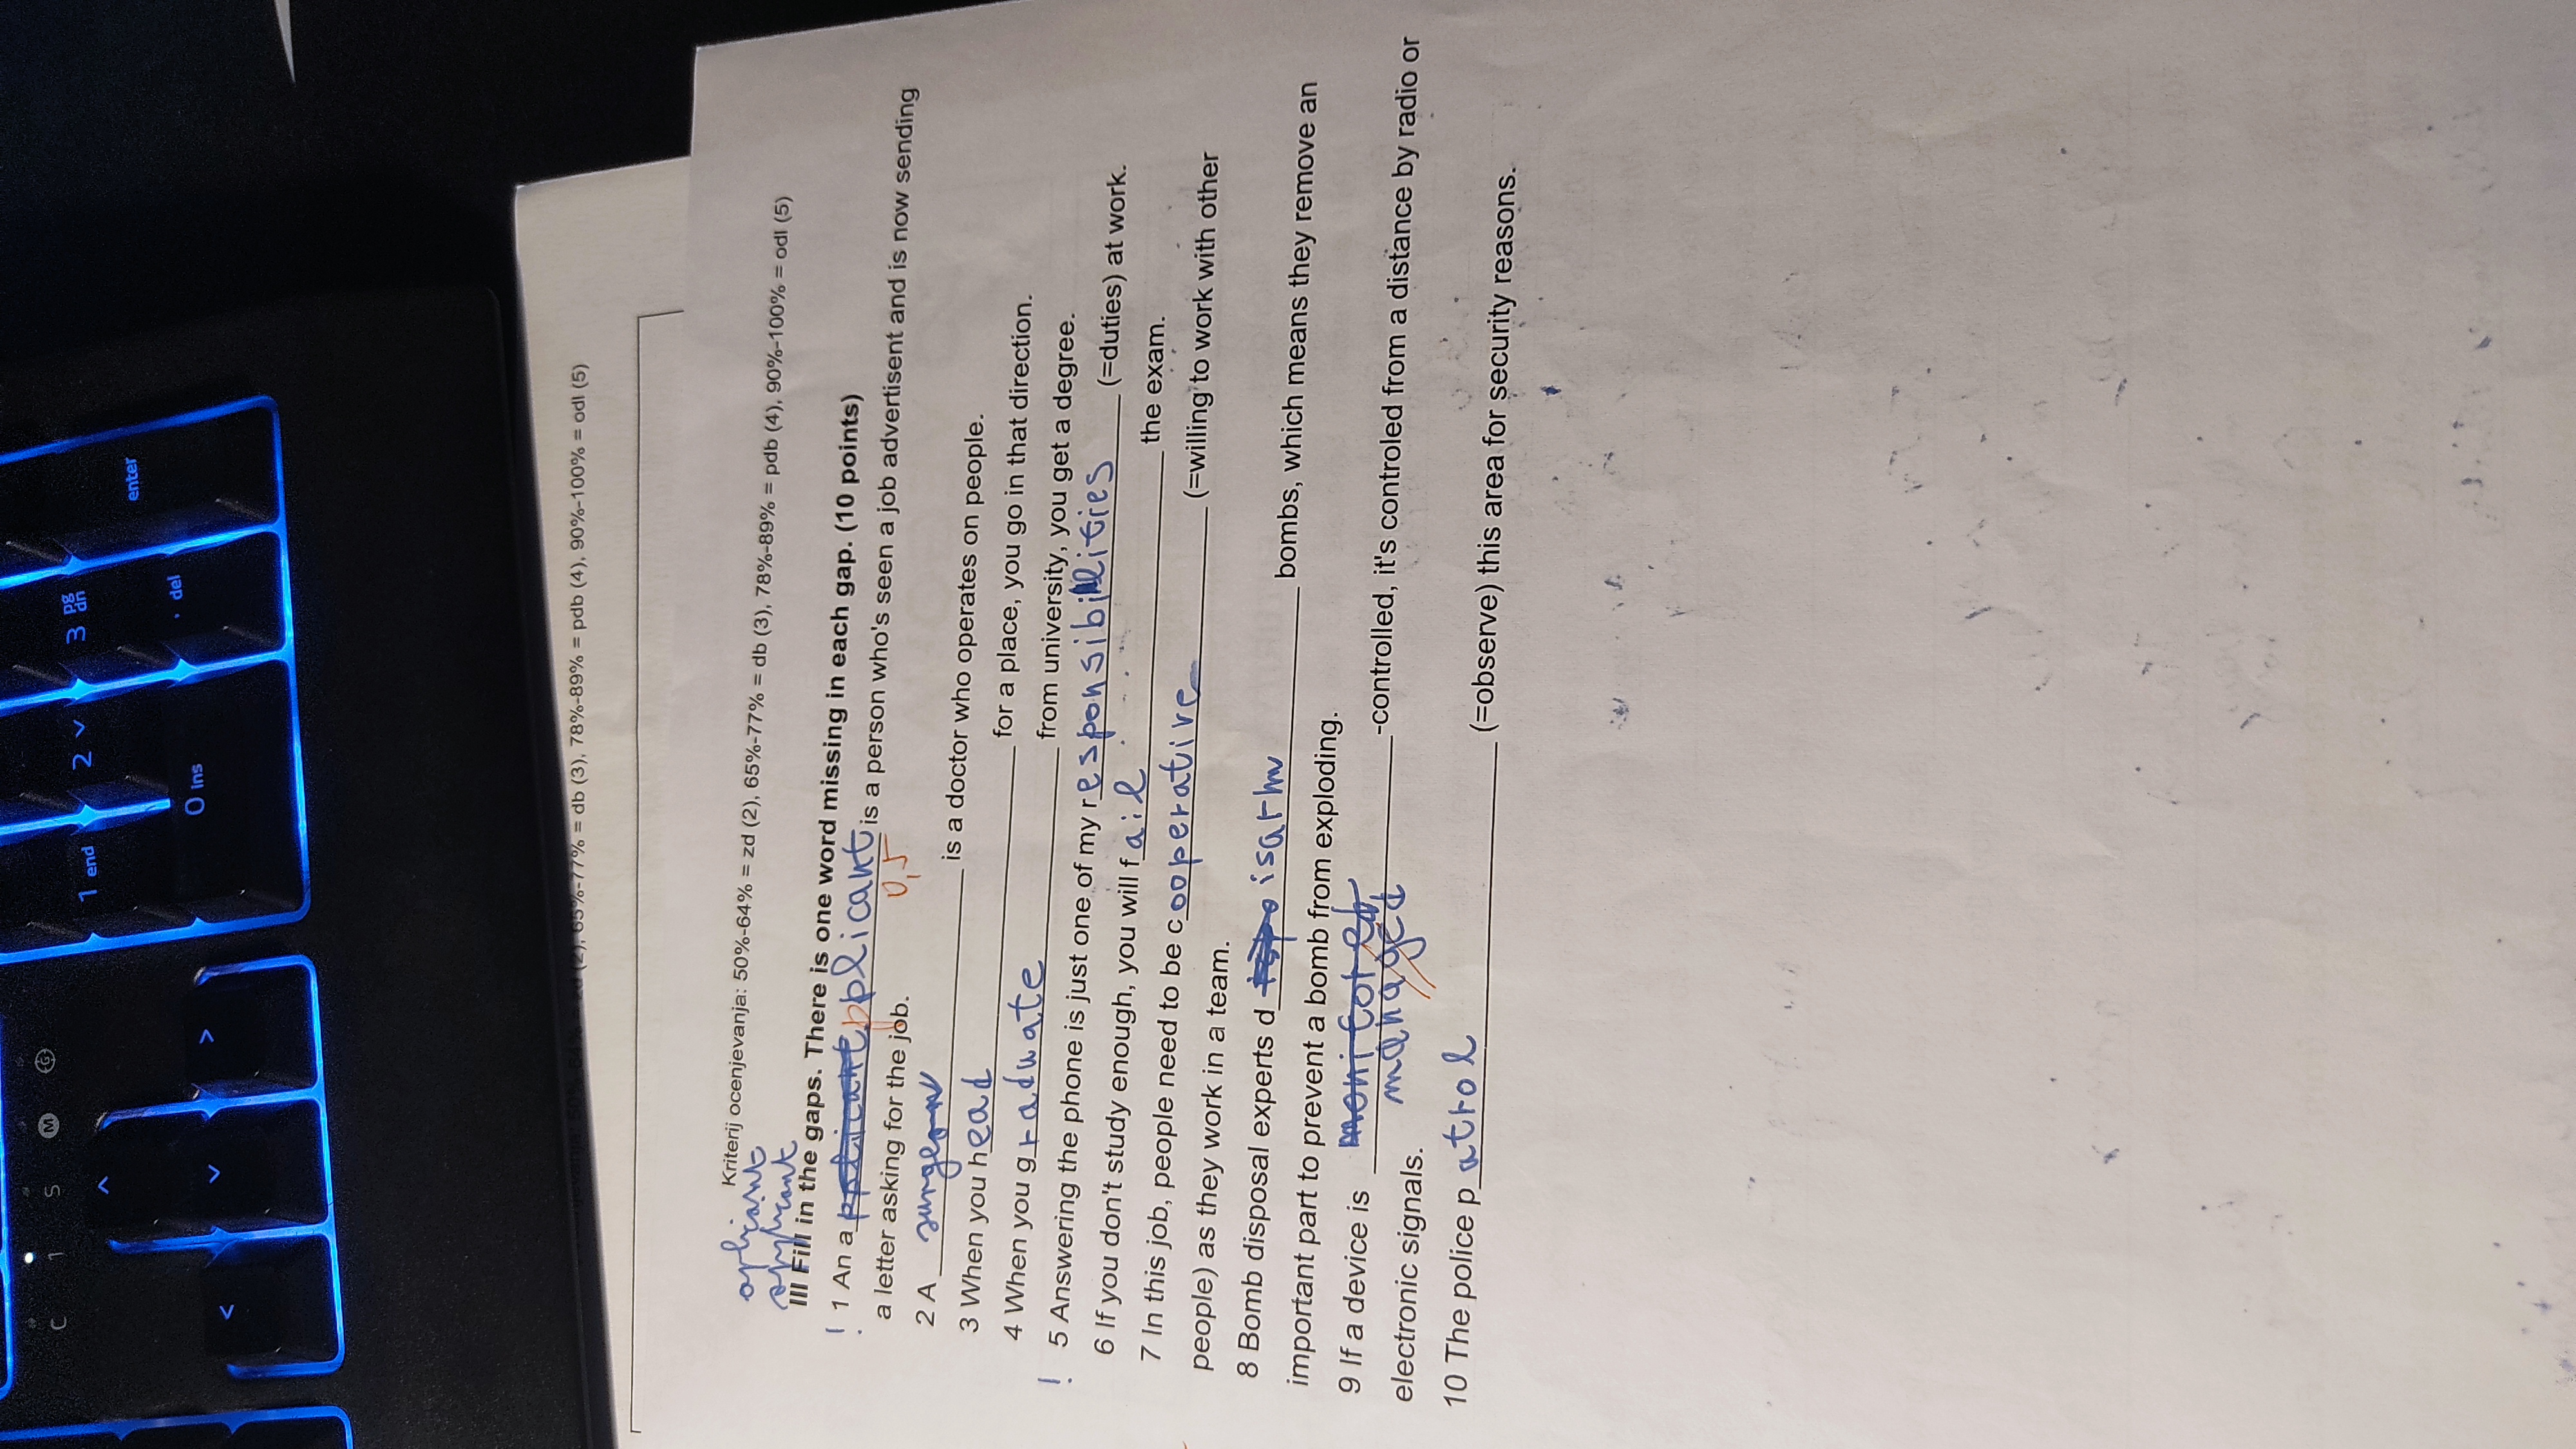 C 1 S M G
1 end 2 3 pg dn
enter
0 ins . del
< v > ^
(2), 65%-77% = db (3), 78%-89% = pdb (4), 90%-100% = odl (5)
Kriterij ocenjevanja: 50%-64% = zd (2), 65%-77% = db (3), 78%-89% = pdb (4), 90%-100% = odl (5)
aplicant
applicant
III Fill in the gaps. There is one word missing in each gap. (10 points)
! 1 An a pplicant is a person who's seen a job advertisent and is now sending
a letter asking for the job. 0,5
2 A surgeon is a doctor who operates on people.
3 When you head for a place, you go in that direction.
4 When you graduate from university, you get a degree.
! 5 Answering the phone is just one of my responsibilities (=duties) at work.
6 If you don't study enough, you will fail the exam.
7 In this job, people need to be cooperative (=willing to work with other
people) as they work in a team.
8 Bomb disposal experts d isarm bombs, which means they remove an
important part to prevent a bomb from exploding.
9 If a device is monitored -controlled, it's controled from a distance by radio or
managed
electronic signals.
10 The police patrol (=observe) this area for security reasons.